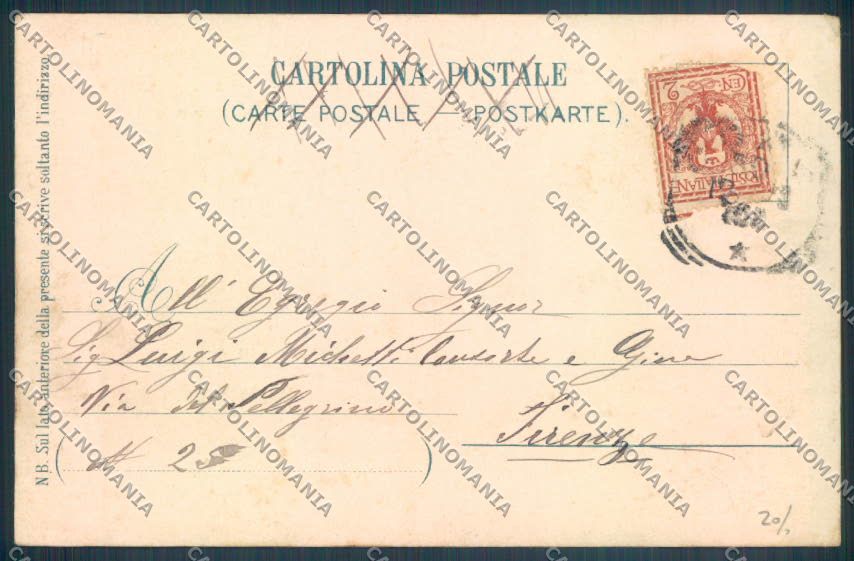 CARTOLINA POSTALE
(CARTE POSTALE — POSTKARTE).
CEN. 2
POSTE ITALIANE
NB. Sul lato anteriore della presente si scrive soltanto l'indirizzo.
All' Egregio Signor
Sig Luigi Michetti Consorte e Gine
Via Del Pellegrino
N 25
Firenze
20/
CARTOLINOMANIA